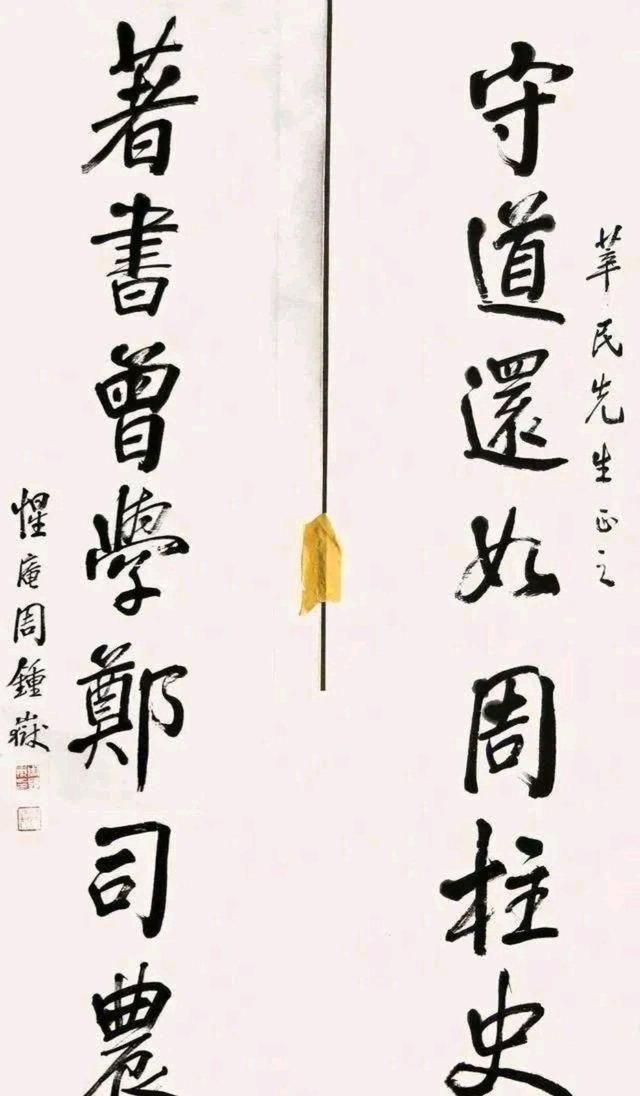 華民先生正之
守道還如周柱史
著書曾學鄭司農
惺庵周鍾嶽